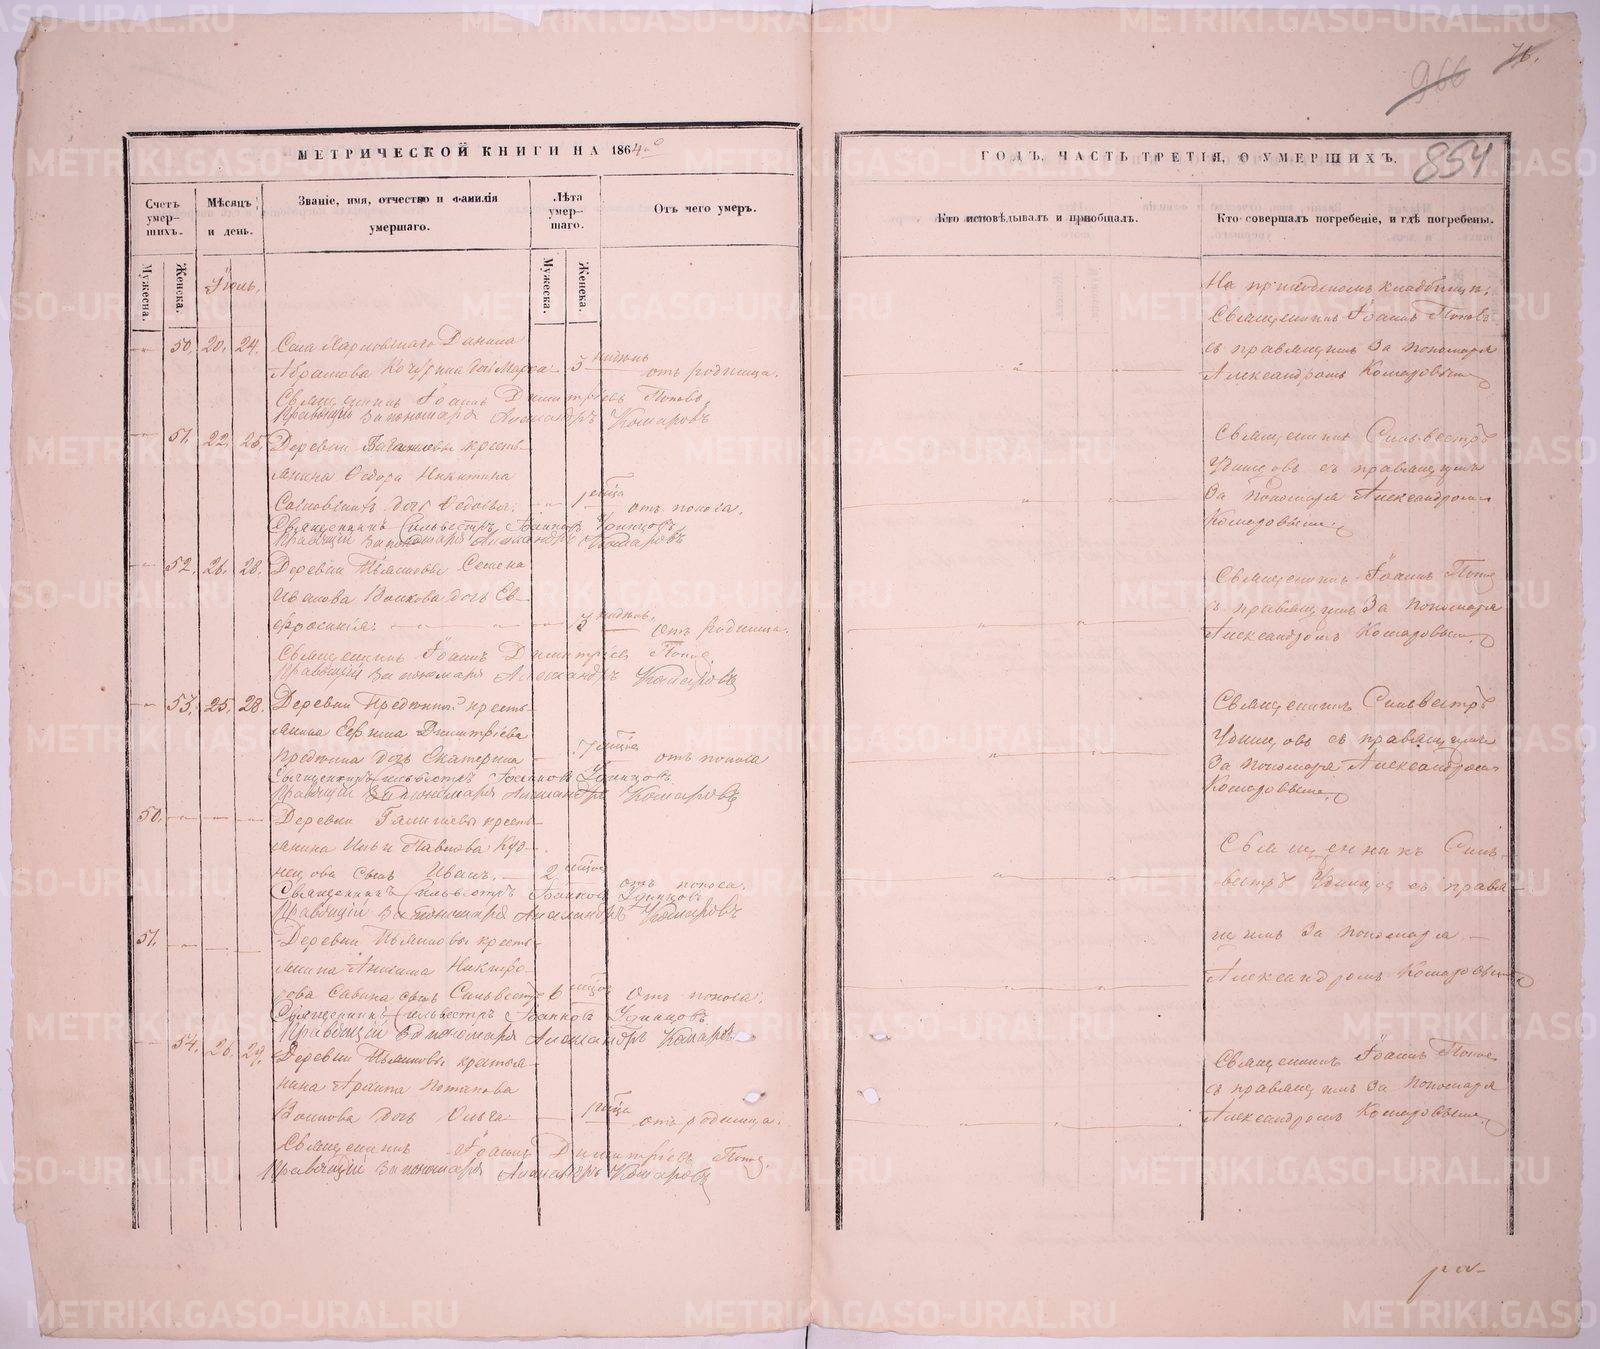 76.
966
МЕТРИЧЕСКОЙ КНИГИ НА 1864го
ГОДЪ, ЧАСТЬ ТРЕТІЯ, О УМЕРШИХЪ.
854
Счетъ умер-
шихъ.
Мѣсяцъ
и день.
Званіе, имя, отчество и фамилія
умершаго.
Лѣта
умер-
шаго.
Отъ чего умеръ.
Кто исповѣдывалъ и пріобщалъ.
Кто совершалъ погребеніе, и гдѣ погребены.
Мужеска.
Женска.
Мужеска.
Женска.
Іюль.
На приходскомъ кладбищѣ.
Священникъ Іоаннъ Поповъ
съ правящимъ За пономаря
Александромъ Комаровымъ
50. 20. 24. Села Данила
Абрамова дочь Марѳа 3 недѣль отъ родимца.
Священникъ Іоаннъ Димитріевъ Поповъ
Правящій За пономаря Александръ Комаровъ
51. 22. 25. Деревни кресть-
янина Ѳедора Никитина
дочь Ѳедосья 1 мѣсяца отъ поноса.
Священникъ Сильвестръ Удинцовъ
Правящій За пономаря Александръ Комаровъ
Священникъ Сильвестръ
Удинцовъ съ правящимъ
За пономаря Александромъ
Комаровымъ.
52. 26. 28. Деревни Семена
Иванова Волкова дочь Ев-
фросинія 3 недѣль. Отъ родимца.
Священникъ Іоаннъ Димитріевъ Поповъ
Правящій За пономаря Александръ Комаровъ
Священникъ Іоаннъ Поповъ
съ правящимъ За пономаря
Александромъ Комаровымъ
53. 25. 28. Деревни кресть-
янина Ефима Димитріева
дочь Екатерина 7 мѣсяцевъ отъ поноса
Священникъ Сильвестръ Удинцовъ
Правящій За пономаря Александръ Комаровъ
Священникъ Сильвестръ
Удинцовъ съ правящимъ
За пономаря Александромъ
Комаровымъ.
50. Деревни кресть-
янина Ильи Павлова Куз-
нецова сынъ Иванъ. 2 мѣсяцевъ отъ поноса.
Священникъ Сильвестръ Удинцовъ
Правящій За пономаря Александръ Комаровъ
Священникъ Силь-
вестръ Удинцовъ съ правя-
щимъ За пономаря
Александромъ Комаровымъ
51. Деревни кресть-
янина Никифо-
рова Савина сынъ Сильвестръ 6 мѣсяцевъ Отъ поноса.
Священникъ Сильвестръ Удинцовъ
Правящій За пономаря Александръ Комаровъ
54. 26. 29. Деревни крестья-
нина Потапова
Волкова дочь Ольга 1 мѣсяца отъ родимца.
Священникъ Іоаннъ Димитріевъ Поповъ
Правящій За пономаря Александръ Комаровъ
Священникъ Іоаннъ Поповъ
съ правящимъ За пономаря
Александромъ Комаровымъ
METRIKI.GASO-URAL.RU